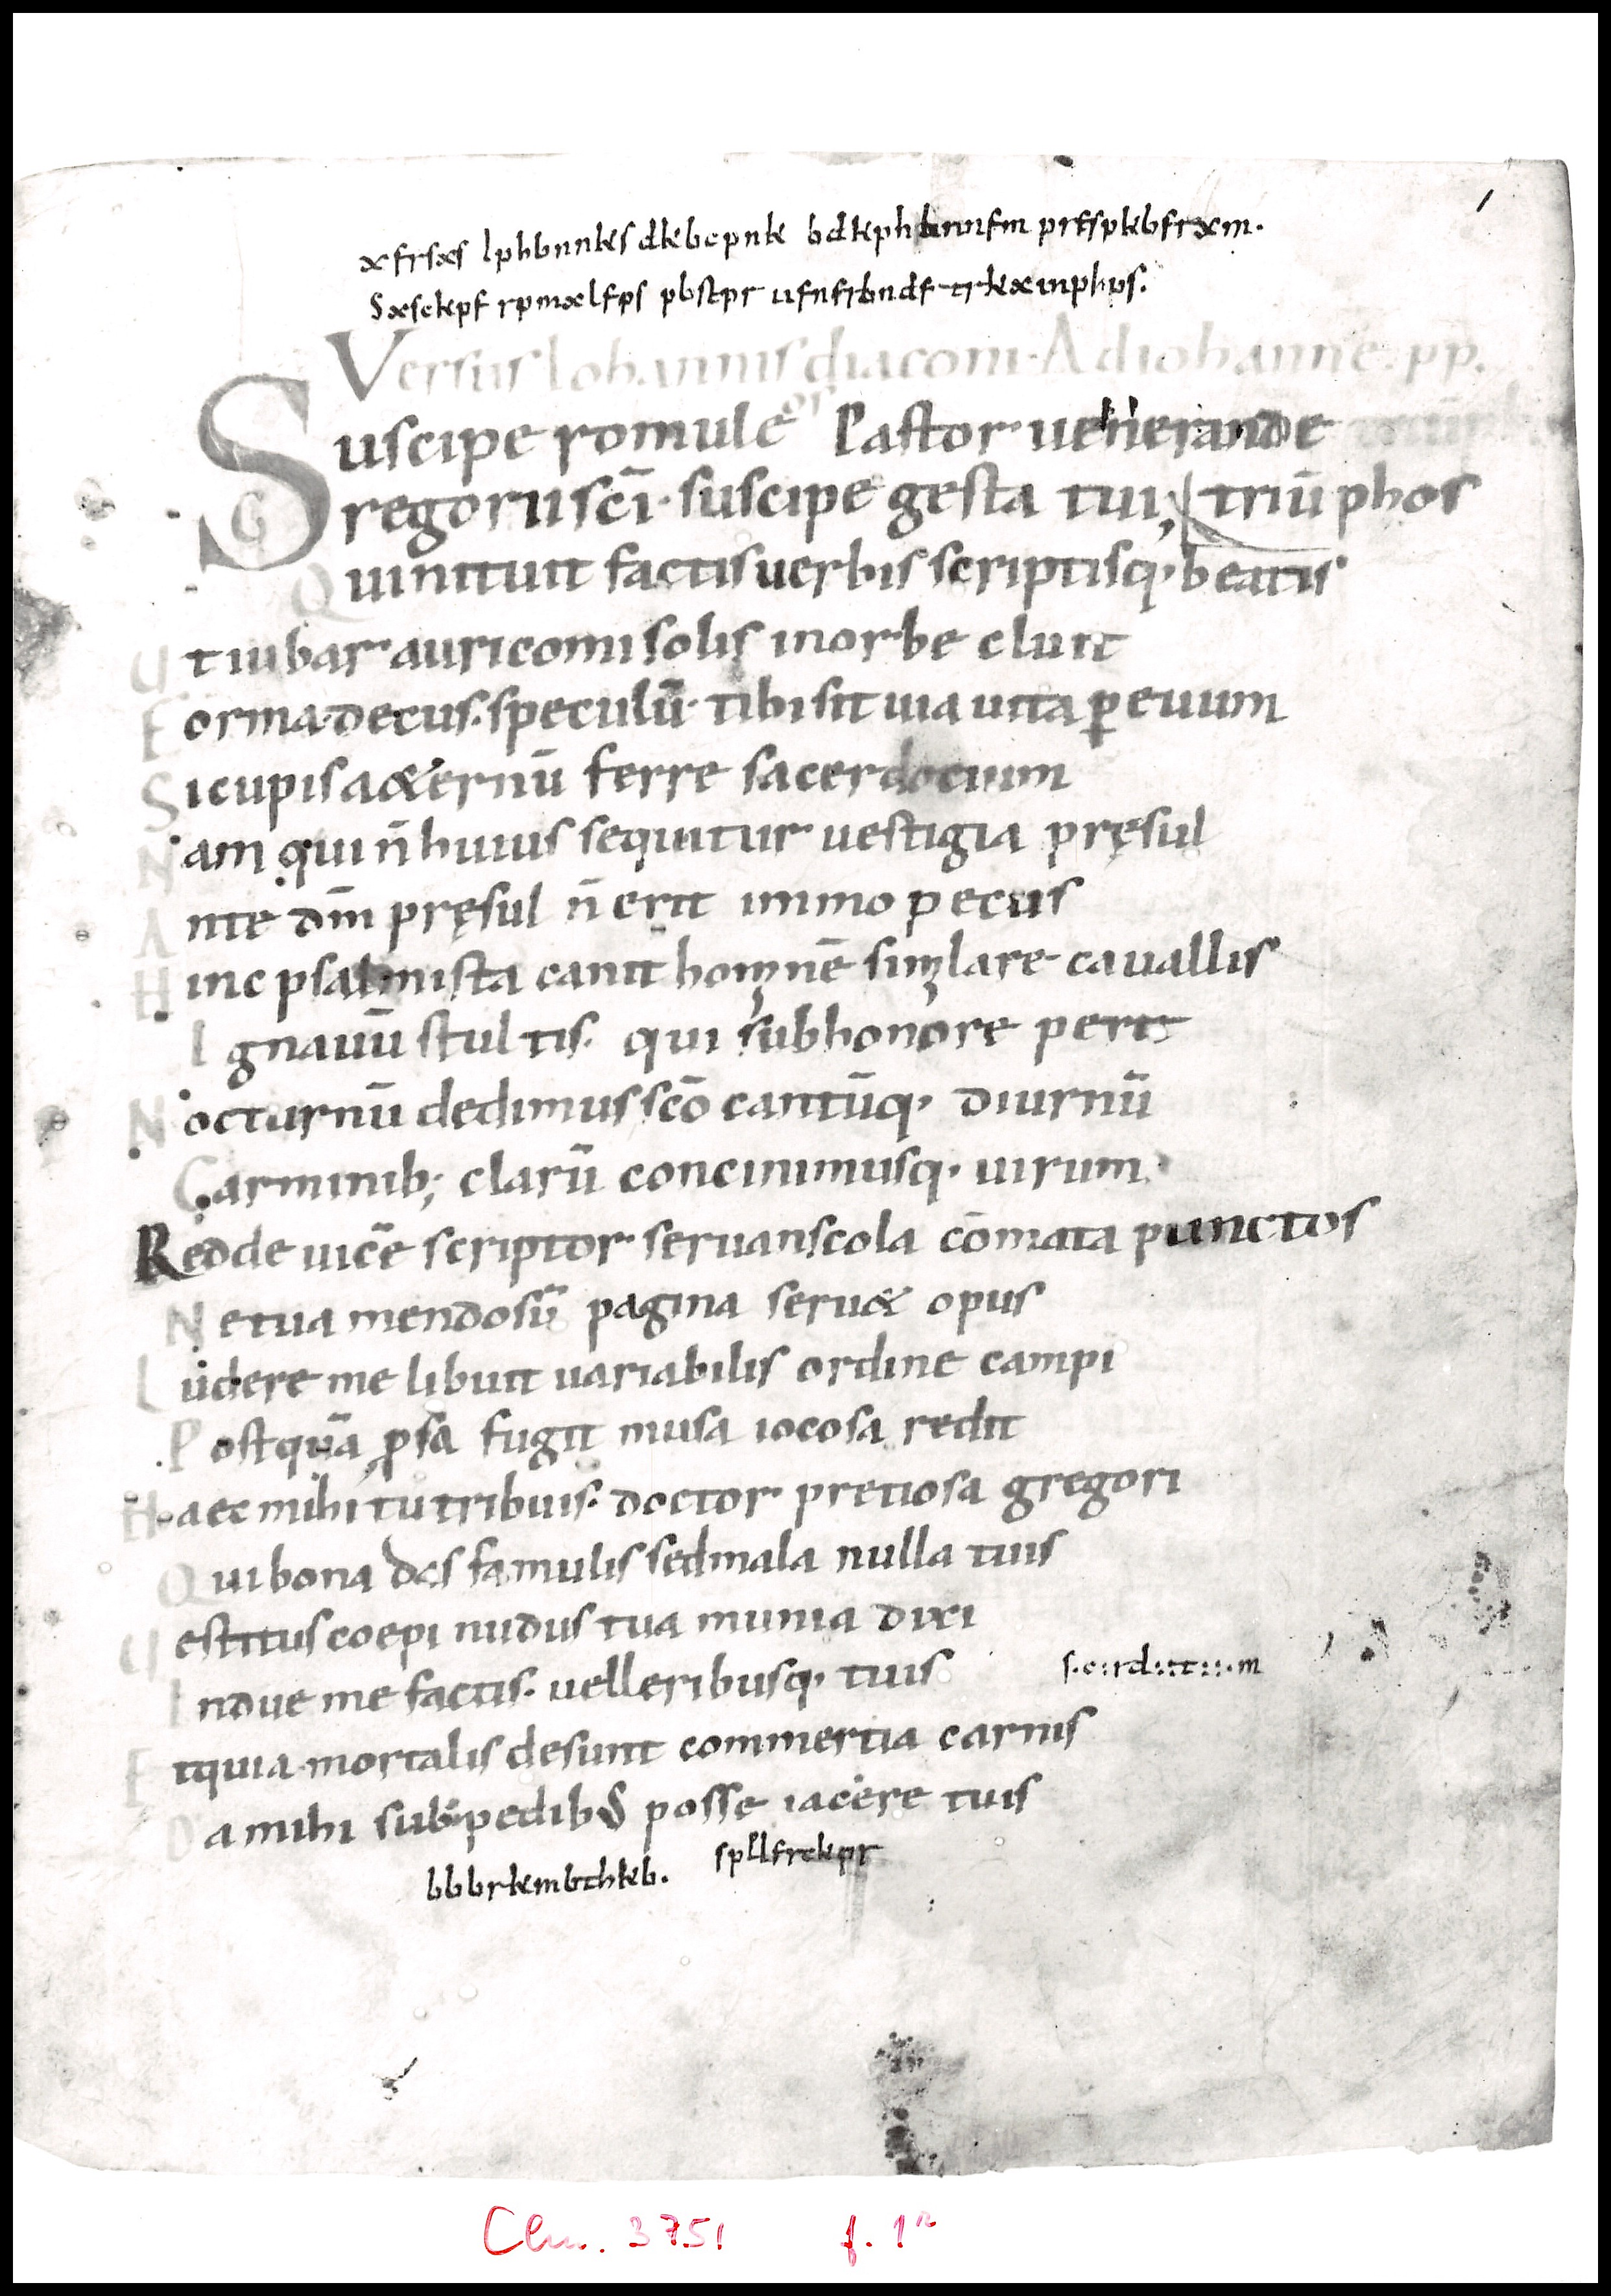 /
xfrsxs lphbnnks dkbcpnk bdkphbnnfm prfspkbfrxm.
Sxsckpf rpmxlfps pbstpr ufnfrbndf trkxmphps.
Versus Iohannis diaconi. Ad iohannē. pp.
Suscipe romuleos Pastor uenerande
Gregorii sc̄i. suscipe gesta tui, triū phos
Qui nituit factis uerbis scriptisq; beatis
Ut iubar auricomi solis in orbe cluit
Forma. decus. speculū. tibi sit uia uita ꝑ euum
Si cupis a&ernū ferre sacerdocium
Nam qui n̄ huius sequitur uestigia pręsul
Ante dm̄ pręsul n̄ erit immo pecus
Hinc psalmista canit hominē similare cauallis
Ignauū stultis. qui sub honore perit
Nocturnū dedimus sc̄o cantūq; diurnū
Carminib; clarū concinimusq; uirum
Redde uicē scriptor seruans cola cōmata punctos
Ne tua mendosū pagina seru& opus
Ludere me libuit uariabilis ordine campi
Postquā ꝓsa fugit musa iocosa redit
Haec mihi tu tribuis. doctor pretiosa gregori
Qui bona des famulis sed mala nulla tuis
Uestitus coepi nudus tua munia dixi
Indue me factis. uelleribusq; tuis
s.c::rd::t:::.m
Et quia mortalis desunt commertia carnis
Da mihi sub pedibus posse iacere tuis
spllfrckpr
bbbrkmbthkb.
Clm. 3751 f. 1r